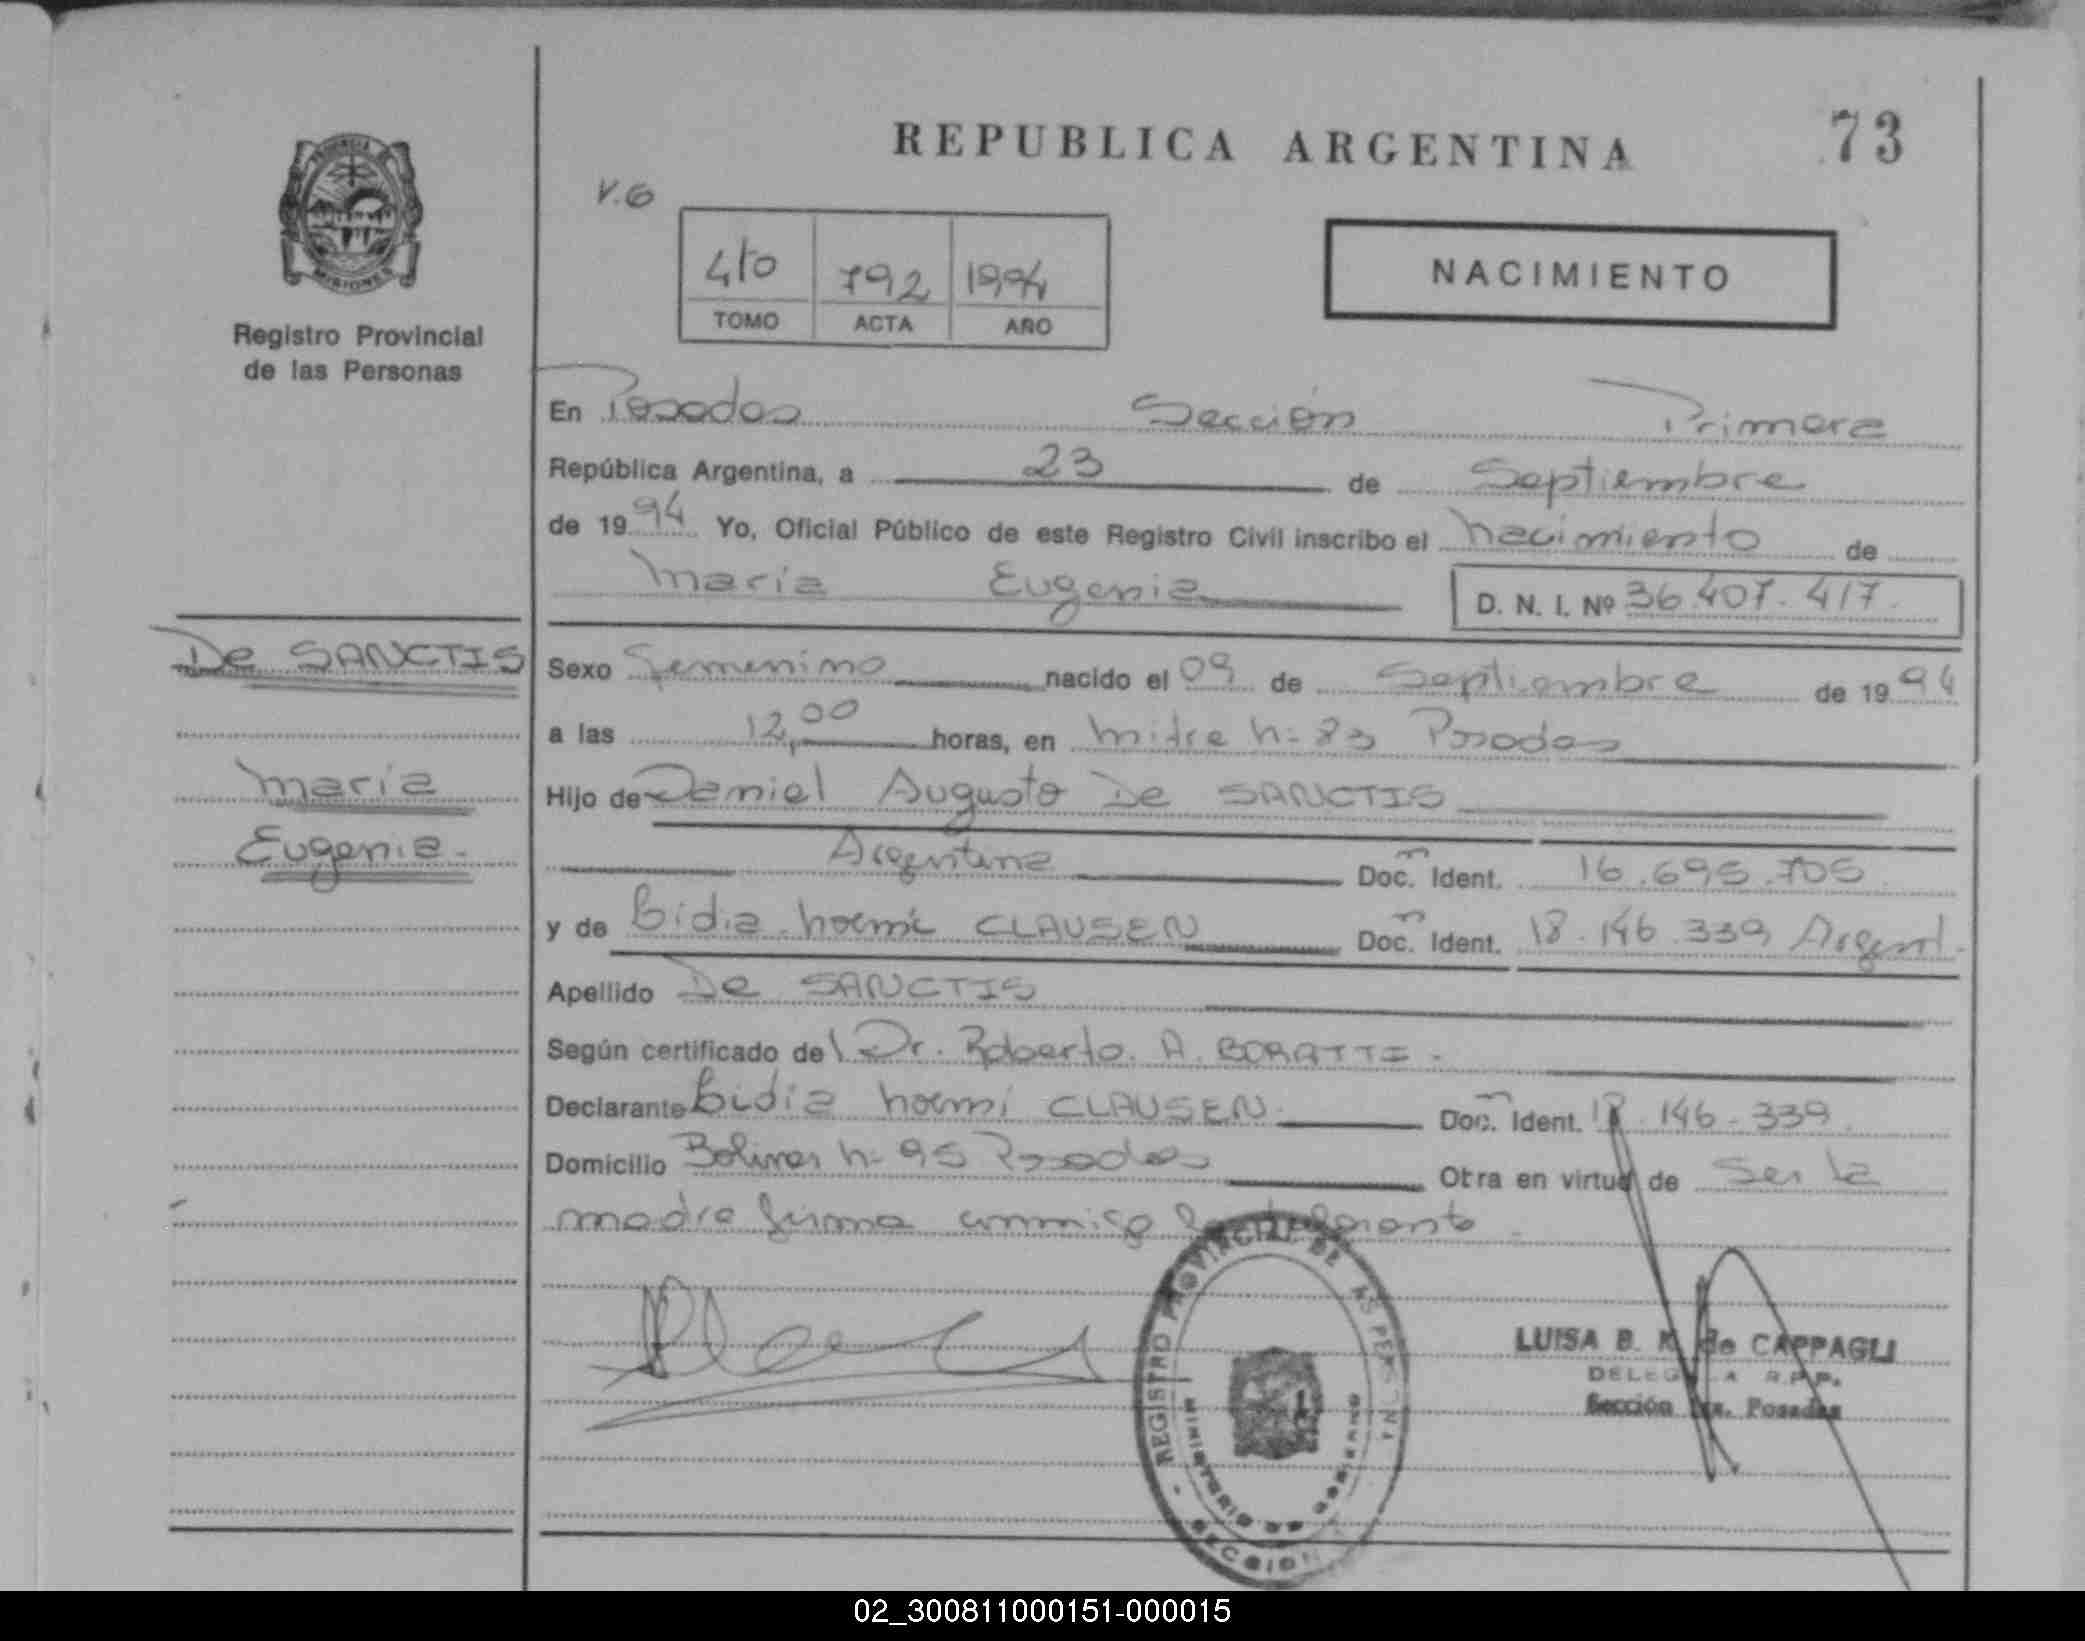 REPUBLICA ARGENTINA
73
V.6
PROVINCIA DE
MISIONES
Registro Provincial
de las Personas
4to 792 1994
TOMO ACTA AÑO
NACIMIENTO
En Posadas Sección Primera
República Argentina, a 23 de Septiembre
de 1994 Yo, Oficial Público de este Registro Civil inscribo el nacimiento de
María Eugenia D. N. I. Nº 36.407.417.
De SANCTIS
María
Eugenia.
Sexo femenino nacido el 09 de Septiembre de 1994
a las 12,00 horas, en mitre n= 83 Posadas
Hijo de Daniel Augusto De SANCTIS
Argentina Doc. Ident. 16.695.705
y de Bidia noemí CLAUSEN Doc. Ident. 18.146.339 Argent.
Apellido De SANCTIS
Según certificado del Dr. Roberto A. BORATTI.
Declarante Bidia noemí CLAUSEN Doc. Ident. 18.146.339.
Domicilio Bolivar n= 95 Posadas Otra en virtud de ser la
madre firma conmigo
REGISTRO PROVINCIAL DE LAS PERSONAS
MINISTERIO DE GOBIERNO
SECCION
LUISA B. K. de CAPPAGLI
DELEGADA R.P.P.
Sección 1ra. Posadas
02_300811000151-000015